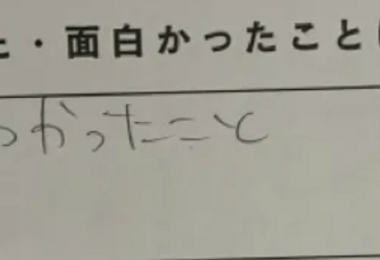 と・面白かったこと
つかったこと